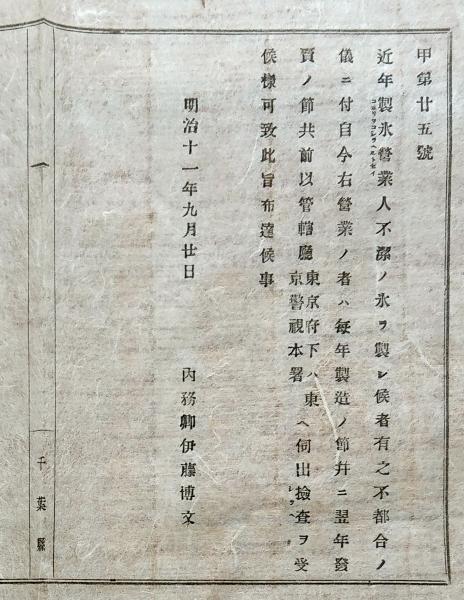 甲第廿五號
近年製氷營業人不潔ノ氷ヲ製シ候者有之不都合ノ
コホリヲコシラヘルトセイ
儀ニ付自今右營業ノ者ハ每年製造ノ節幷ニ翌年發
賣ノ節共前以管轄廳東京府下ハ東京警視本署ヘ伺出撿査ヲ受
シラベ
候樣可致此旨布達候事
明治十一年九月廿日
內務卿伊藤博文
千葉縣